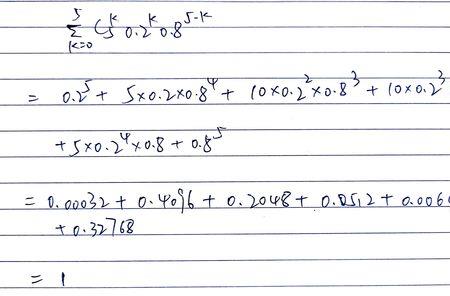 ∑_{k=0}^{5} C_5^k 0.2^k 0.8^{5-k}
= 0.2^5 + 5×0.2×0.8^4 + 10×0.2^2×0.8^3 + 10×0.2^3
+ 5×0.2^4×0.8 + 0.8^5
= 0.00032 + 0.4096 + 0.2048 + 0.0512 + 0.006
+ 0.32768
= 1